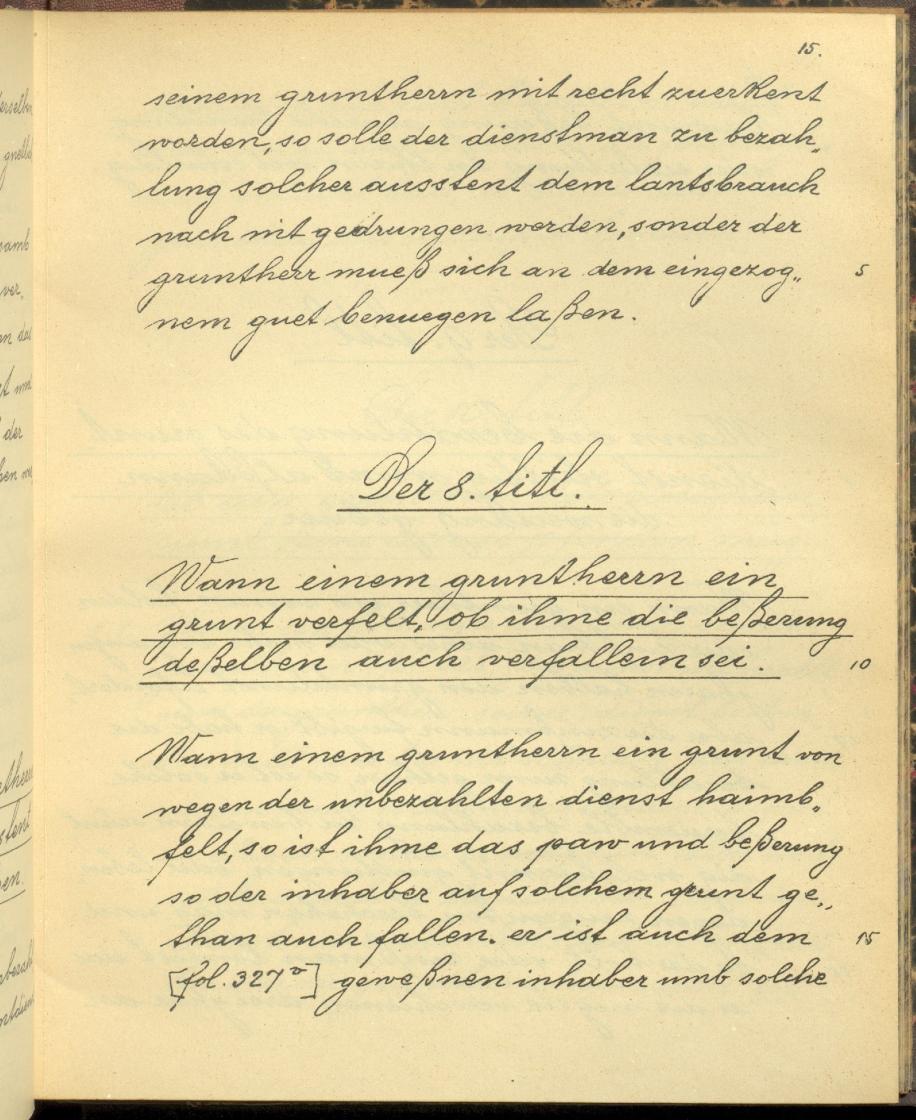 15.
seinem gruntherrn mit recht zuerkent
worden, so solle der dienstman zu bezah„
lung solcher ausstent dem lantsbrauch
nach nit gedrungen werden, sonder der
gruntherr mueß sich an dem eingezog„ 5
nem guet benuegen laßen.
Der 8. titl.
Wann einem gruntherrn ein
grunt verfelt, ob ihme die beßerung
deßelben auch verfallem sei. 10
Wann einem gruntherrn ein grunt von
wegen der unbezahlten dienst haimb„
felt, so ist ihme das paw und beßerung
so der inhaber auf solchem grunt ge„
than auch fallen. er ist auch dem 15
[fol. 327ᵛ] geweßnen inhaber umb solche